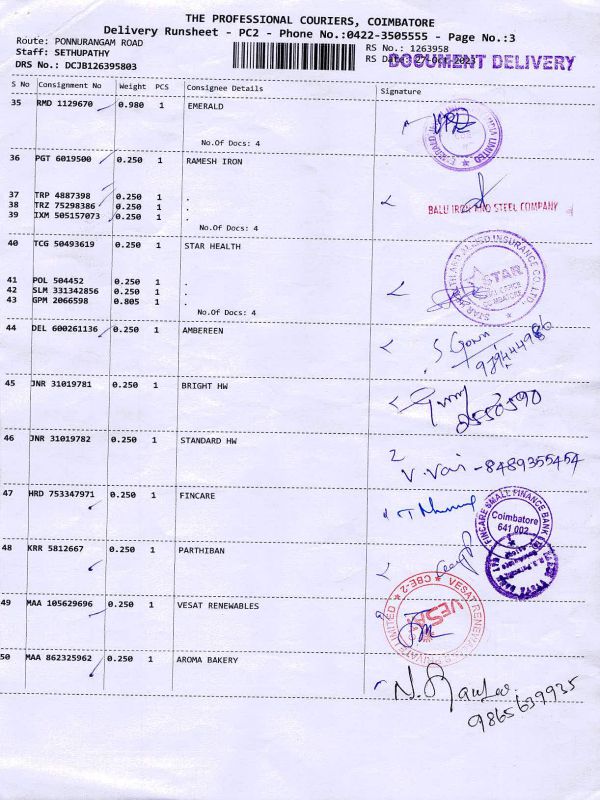 THE PROFESSIONAL COURIERS, COIMBATORE
Delivery Runsheet - PC2 - Phone No.:0422-3505555 - Page No.:3
Route: PONNURANGAM ROAD
RS No.: 1263958
Staff: SETHUPATHY
RS Date: 27-Oct-2023
DOCUMENT DELIVERY
DRS No.: DCJB126395803
S No Consignment No Weight PCS Consignee Details Signature
35 RMD 1129670 0.980 1 EMERALD
No.Of Docs: 4
36 PGT 6019500 0.250 1 RAMESH IRON
37 TRP 4887398 0.250 1 .
38 TRZ 75298386 0.250 1 .
39 IXM 505157073 0.250 1 .
BALU IRON AND STEEL COMPANY
No.Of Docs: 4
40 TCG 50493619 0.250 1 STAR HEALTH
41 POL 504452 0.250 1 .
42 SLM 331342856 0.250 1 .
43 GPM 2066598 0.805 1 .
No.Of Docs: 4
STAR
44 DEL 600261136 0.250 1 AMBEREEN
45 JNR 31019781 0.250 1 BRIGHT HW
2550590
46 JNR 31019782 0.250 1 STANDARD HW
V. Vai - 8489355454
47 HRD 753347971 0.250 1 FINCARE
FINCARE SMALL FINANCE BANK
Coimbatore
641 002
48 KRR 5812667 0.250 1 PARTHIBAN
49 MAA 105629696 0.250 1 VESAT RENEWABLES
CBE-2
VESAT
50 MAA 862325962 0.250 1 AROMA BAKERY
9865639935